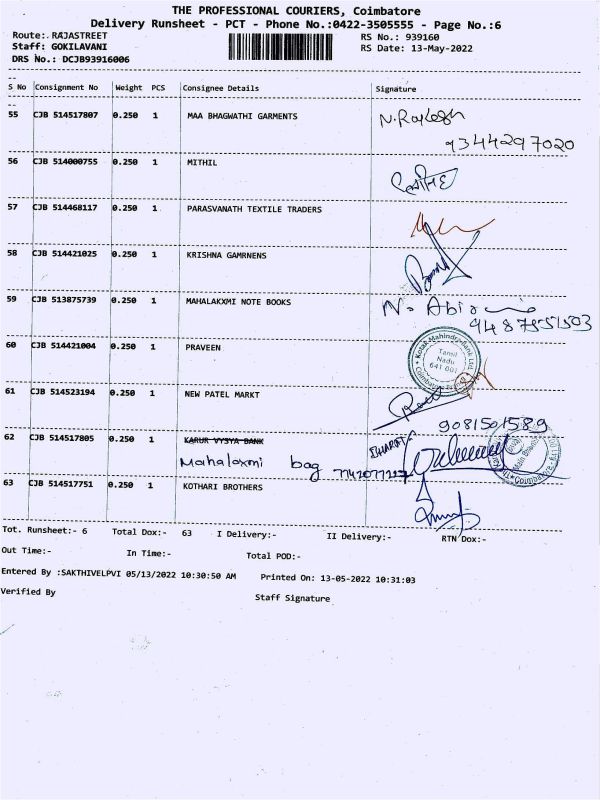 THE PROFESSIONAL COURIERS, Coimbatore
Delivery Runsheet - PCT - Phone No.:0422-3505555 - Page No.:6
Route:.RAJASTREET RS No.: 939160
Staff: GOKILAVANI RS Date: 13-May-2022
DRS No.: DCJB93916006
S No Consignment No Weight PCS Consignee Details Signature
55 CJB 514517807 0.250 1 MAA BHAGWATHI GARMENTS N. Rajesh
9344297020
56 CJB 514000755 0.250 1 MITHIL
57 CJB 514468117 0.250 1 PARASVANATH TEXTILE TRADERS
58 CJB 514421025 0.250 1 KRISHNA GAMRNENS
59 CJB 513875739 0.250 1 MAHALAKXMI NOTE BOOKS N. Abi
60 CJB 514421004 0.250 1 PRAVEEN
Kotak Mahindra Bank Ltd.
Tamil
Nadu
641 001
61 CJB 514523194 0.250 1 NEW PATEL MARKT
9081501589
62 CJB 514517805 0.250 1 KARUR VYSYA BANK BHARAT
Mahalaxmi bag
63 CJB 514517751 0.250 1 KOTHARI BROTHERS
Tot. Runsheet:- 6 Total Dox:- 63 I Delivery:- II Delivery:- RTN Dox:-
Out Time:- In Time:- Total POD:-
Entered By :SAKTHIVELPVI 05/13/2022 10:30:50 AM Printed On: 13-05-2022 10:31:03
Verified By Staff Signature